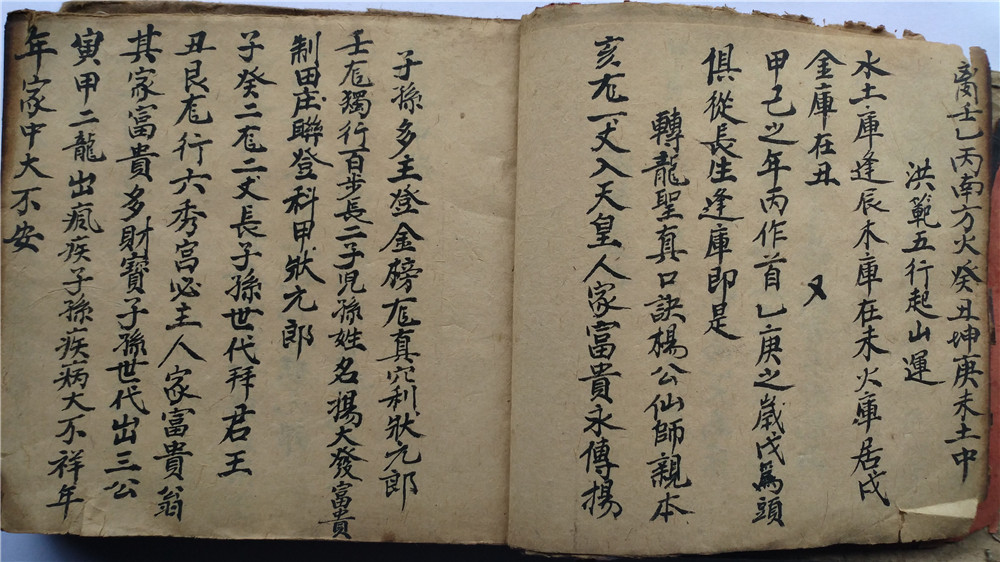 離壬乙丙南方火癸丑坤庚未土中
洪範五行起山運
水土庫逢辰木庫在未火庫居戌
金庫在丑 又
甲己之年丙作首乙庚之歲戊為頭
俱從長生逢庫即是
轉龍聖真口訣楊公仙師親本
亥龙一丈入天皇人家富貴永傳揚
子孫多主登金榜龙真穴利狀元郎
壬龙獨行百步長二子児孫姓名揚大發富貴
制田庄聯登科甲狀元郎
子癸二龙二丈長子孫世代拜君王
丑艮龙行六秀宫必主人家富貴翁
其家富貴多財寶子孫世代出三公
寅甲二龍出瘋疾子孫疾病大不祥年
年家中大不安